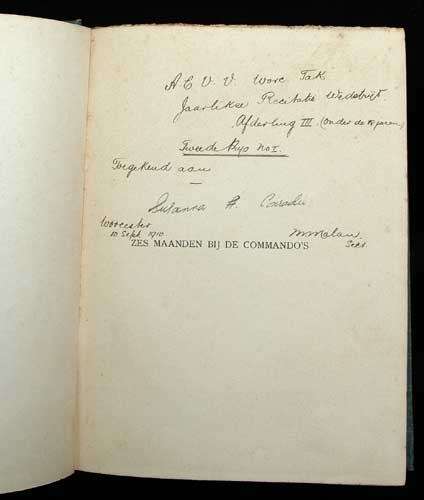 A C V V Worc Tak
Jaarlikse Recitatie Wedstrijt
Afdeling III (onder de 15 jaren)
Tweede Prys No I.
Toegekend aan
Susanna H.
Worcester
10 Sept 1910
M Malan
Secr.
ZES MAANDEN BIJ DE COMMANDO'S